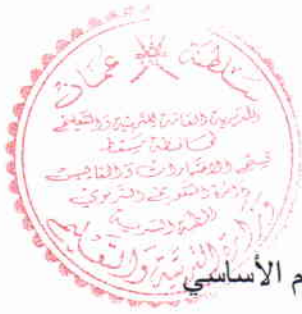 سلطنة عمان
المديرية العامة للتربية والتعليم
لمحافظة مسقط
قسم الاختبارات
دائرة التقويم التربوي
وزارة التربية والتعليم
م الأساسي